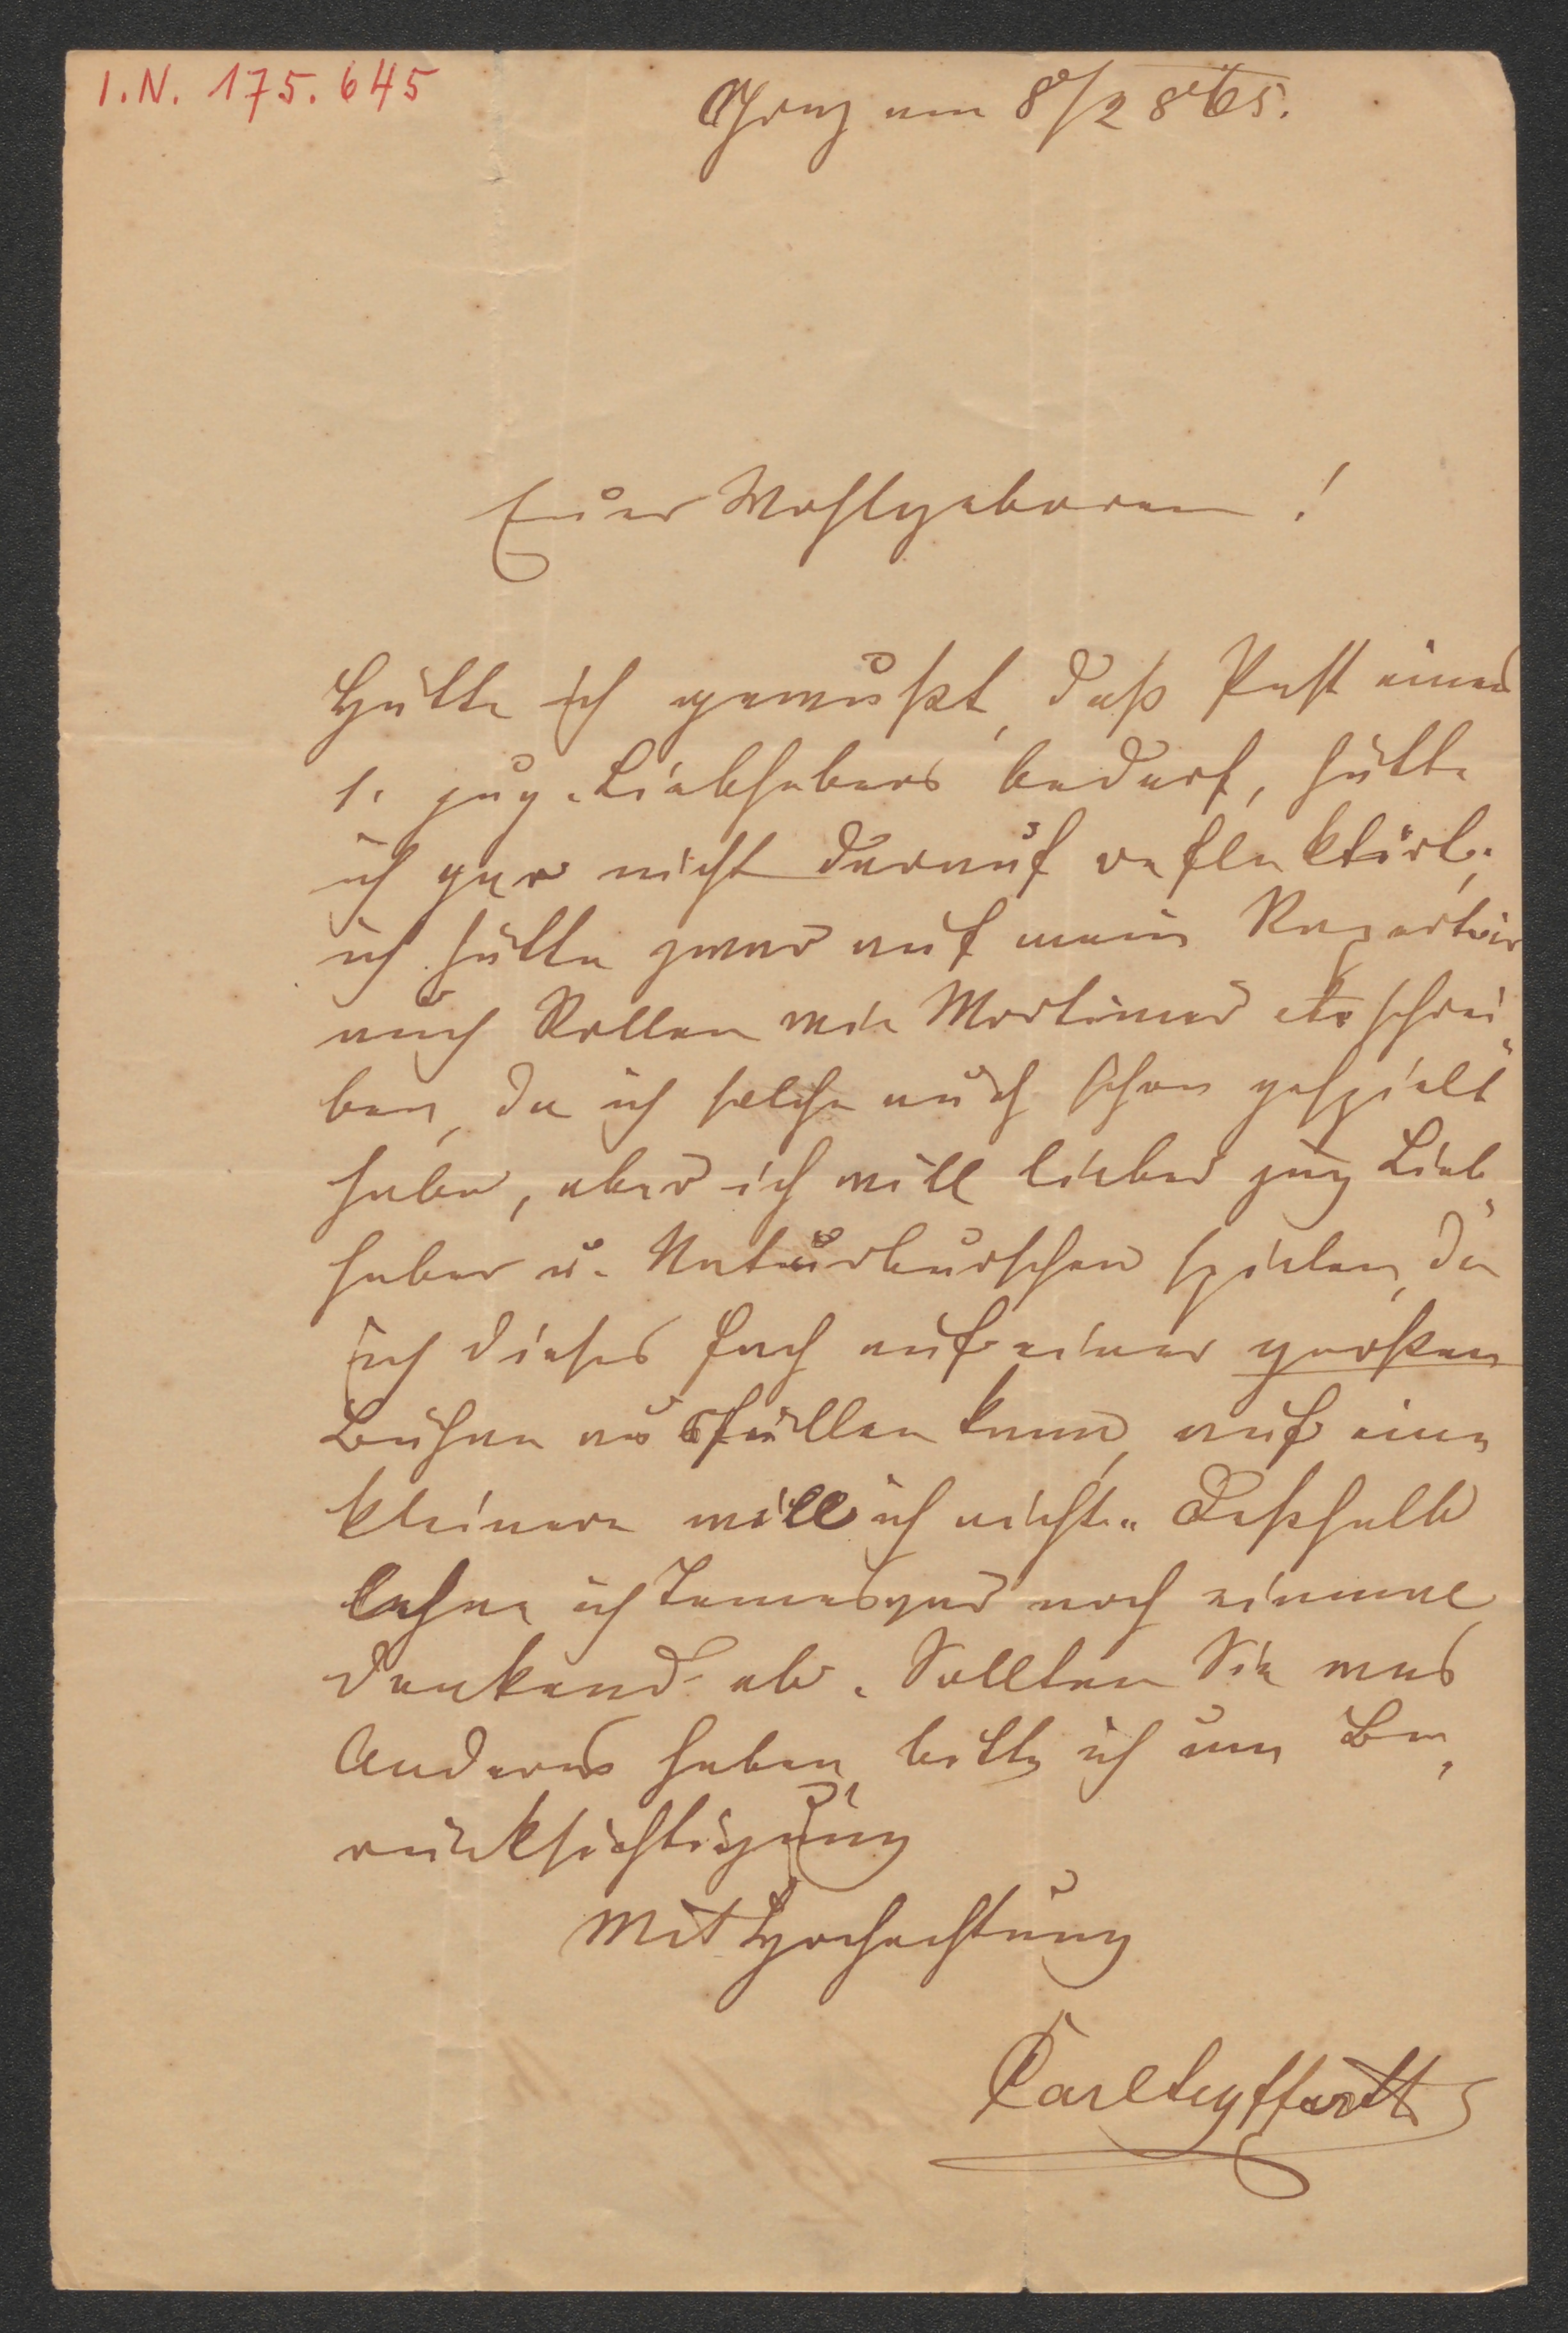 I.N. 175.645
Graz am 8/2 865.
Euer Wohlgeboren!
Hätte ich gewußt, daß Pest einen
1. jug. Liebhabers bedarf, hätte
ich gar nicht darauf reflektirt;
ich hätte zwar auf mein Repertoir
auch Rollen wie Mortimer etc schrei„
ben, da ich solche auch schon gespielt
habe, aber ich will lieber jug Lieb„
haber u. Naturburschen spielen, da
ich dieses Fach auf einer großen
Bühne ausfüllen kann, auf eine
kleinere will ich nicht. Deßhalb
lehne ich Temesvar noch einmal
dankend ab. Sollten Sie was
Anderes haben, bitte ich um Be„
rücksichtigung
Mit Hochachtung
Carl